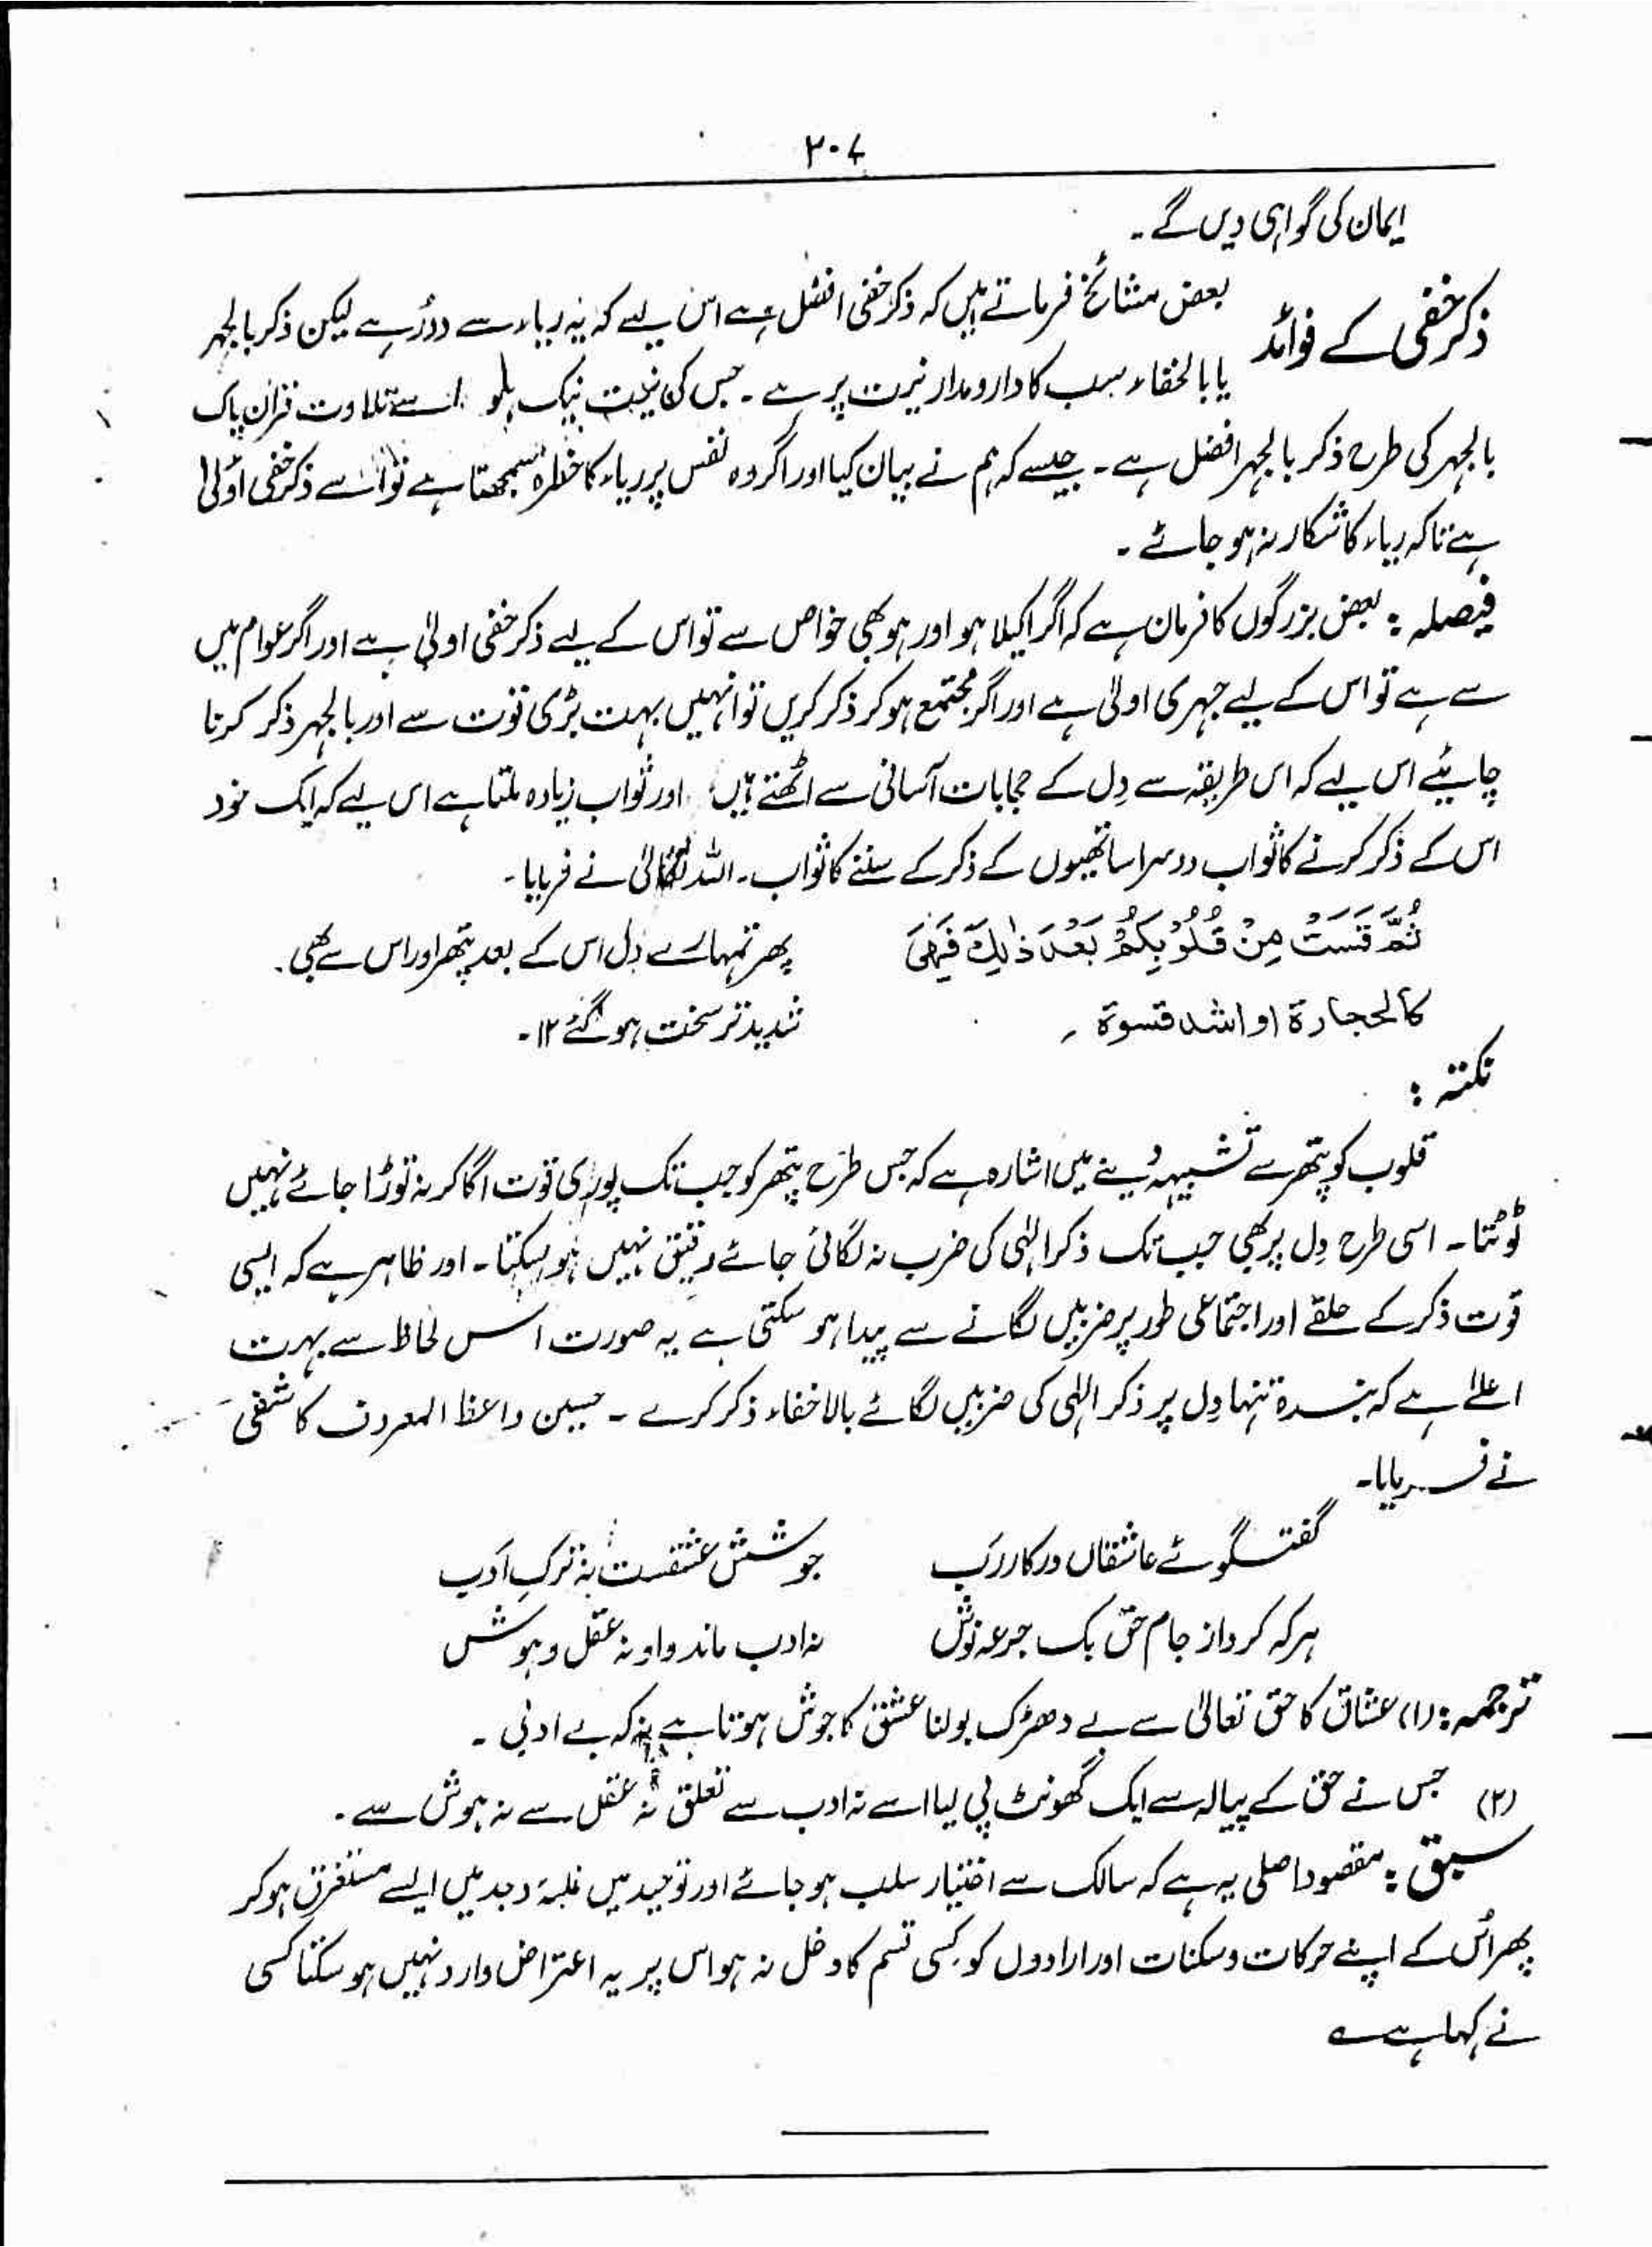 ۲۰۷
ایمان کی گواہی دیں گے۔
ذکر خفی کے فوائد
بعض مشائخ فرماتے ہیں کہ ذکر خفی افضل ہے اس لیے کہ یہ ریاء سے دور ہے لیکن ذکر بالجہر
یا بالخفاء سب کا دارومدار نیت پر ہے۔ جس کی نیت نیک ہو اسے تلاوت قرآن پاک
بالجہر کی طرح ذکر بالجہر افضل ہے۔ جیسے کہ ہم نے بیان کیا اور اگر وہ نفس پر ریاء کا خطرہ سمجھتا ہے تو اسے ذکر خفی اولیٰ
ہے تاکہ ریاء کا شکار نہ ہو جائے۔
فیصلہ : بعض بزرگوں کا فرمان ہے کہ اگر اکیلا ہو اور ہو بھی خواص سے تو اس کے لیے ذکر خفی اولیٰ ہے اور اگر عوام میں
سے ہے تو اس کے لیے جہری اولیٰ ہے اور اگر مجتمع ہو کر ذکر کریں تو انہیں بہت بڑی قوت سے اور بالجہر ذکر کرنا
چاہیئے اس لیے کہ اس طریقہ سے دِل کے حجابات آسانی سے اٹھتے ہیں اور ثواب زیادہ ملتا ہے اس لیے کہ ایک خود
اس کے ذکر کرنے کا ثواب دوسرا ساتھیوں کے ذکر کے سننے کا ثواب۔ اللہ تعالیٰ نے فرمایا۔
ثُمَّ قَسَتْ مِنْ قُلُوْبِکُمْ بَعْدَ ذٰلِکَ فَہِیَ پھر تمہارے دِل اس کے بعد پتھر اور اس سے بھی
کالحجارۃ او اشد قسوۃ شدید تر سخت ہو گئے ۱۲۔
نکتہ :
قلوب کو پتھر سے تشبیہہ دینے میں اشارہ ہے کہ جس طرح پتھر کو جب تک پوری قوت لگا کر نہ توڑا جائے نہیں
ٹوٹتا۔ اسی طرح دِل پر بھی جب تک ذکر الٰہی کی ضرب نہ لگائی جائے رقیق نہیں ہو سکتا۔ اور ظاہر ہے کہ ایسی
قوت ذکر کے حلقے اور اجتماعی طور پر ضربیں لگانے سے پیدا ہو سکتی ہے یہ صورت اس لحاظ سے بہت
اعلٰا ہے کہ بندۃ تنہا دِل پر ذکر الٰہی کی ضربیں لگائے بالاخفاء ذکر کرے۔ حسین واعظ المعروف کاشفی
نے فرمایا۔
گفتگوئے عاشقاں در کار رَب جوشش عشقست نہ ترکِ اَدَب
ہر کہ کرد از جام حق یک جرعہ نوش نہ ادب ماند و او نہ عقل و ہوش
ترجمہ : (۱) عشاق کا حق تعالیٰ سے بے دھڑک بولنا عشق کا جوش ہوتا ہے نہ کہ بے ادبی۔
(۲) جس نے حق کے پیالہ سے ایک گھونٹ پی لیا اسے نہ ادب سے تعلق نہ عقل سے نہ ہوش سے۔
سبق : مقصود اصلی یہ ہے کہ سالک سے اختیار سلب ہو جائے اور توحید میں غلبۂ وجد میں ایسے مستغرق ہو کر
پھر اُس کے اپنے حرکات و سکنات اور ارادوں کو کسی قسم کا دخل نہ ہو اس پر یہ اعتراض وارد نہیں ہو سکتا کسی
نے کہا ہے ؎